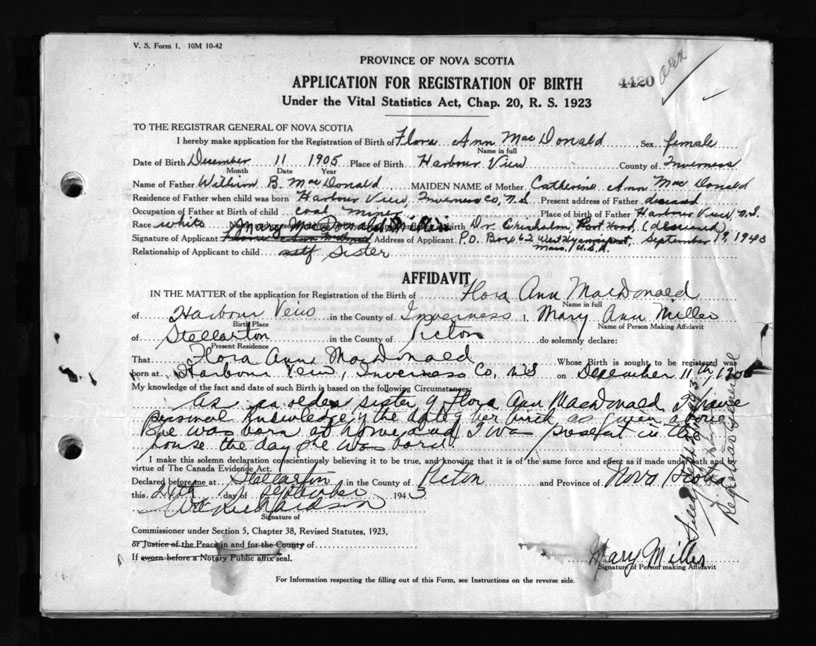 V. S. Form 1. 10M 10-42
PROVINCE OF NOVA SCOTIA
APPLICATION FOR REGISTRATION OF BIRTH
4420 over
Under the Vital Statistics Act, Chap. 20, R. S. 1923
TO THE REGISTRAR GENERAL OF NOVA SCOTIA
I hereby make application for the Registration of Birth of Flora Ann MacDonald Sex female
Name in full
Date of Birth December 11 1905 Place of Birth Harbour View County of Inverness
Month Date Year
Name of Father William B. MacDonald MAIDEN NAME of Mother Catherine Ann MacDonald
Residence of Father when child was born Harbour View, Inverness Co, N.S. Present address of Father deceased
Occupation of Father at Birth of child coal miner Place of birth of Father Harbour View, N.S.
Race white Mary MacDonald Miller Birth Dr. Chisholm, Port Hood, (deceased)
Signature of Applicant Address of Applicant P.O. Box 62 West Hyannisport, Mass. U.S.A. September 19, 1943
Relationship of Applicant to child self Sister
AFFIDAVIT
IN THE MATTER of the application for Registration of the Birth of Flora Ann MacDonald
Name in full
of Harbour View in the County of Inverness I, Mary Ann Miller
Birth Place Name of Person Making Affidavit
of Stellarton in the County of Picton do solemnly declare:
Present Residence
That Flora Ann MacDonald Whose Birth is sought to be registered was
born at Harbour View, Inverness Co. NS on December 11th, 1905
My knowledge of the fact and date of such Birth is based on the following Circumstances:
As an older sister of Flora Ann MacDonald I have
personal knowledge of the date of her birth as given above
She was born at home and I was present in the
house the day she was born.
I make this solemn declaration conscientiously believing it to be true, and knowing that it is of the same force and effect as if made under oath and by
virtue of The Canada Evidence Act.
Declared before me at Stellarton in the County of Picton and Province of Nova Scotia
this 24th day of September 1943
Richardson
Signature of
Commissioner under Section 5, Chapter 38, Revised Statutes, 1923,
or Justice of the Peace in and for the County of
If sworn before a Notary Public affix seal.
Mary Miller
Signature of Person making Affidavit
For Information respecting the filling out of this Form, see Instructions on the reverse side.
Registrar General